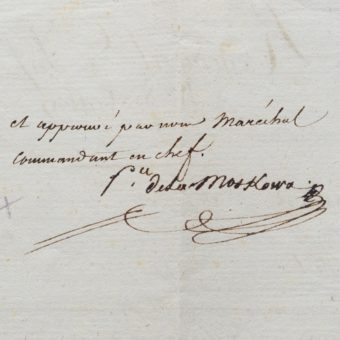 et approuvé par nous Maréchal
commandant en chef.
P.ce de la Moskowa